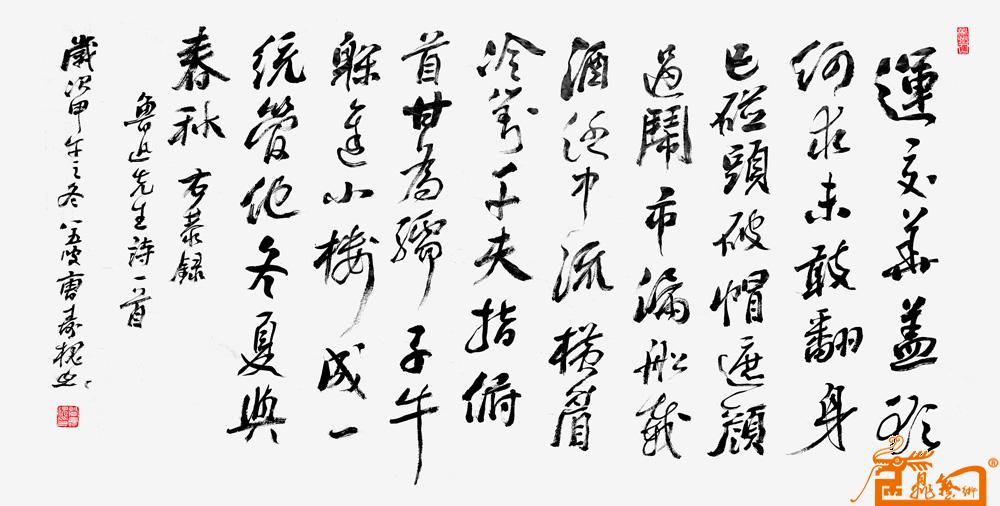 運交華蓋欲
何求未敢翻身
已碰頭破帽遮顏
過鬧市漏船載
酒泛中流橫眉
冷對千夫指俯
首甘為孺子牛
躲進小樓成一
統管他冬夏與
春秋 右恭録
魯迅先生詩一首
歲次甲午之冬